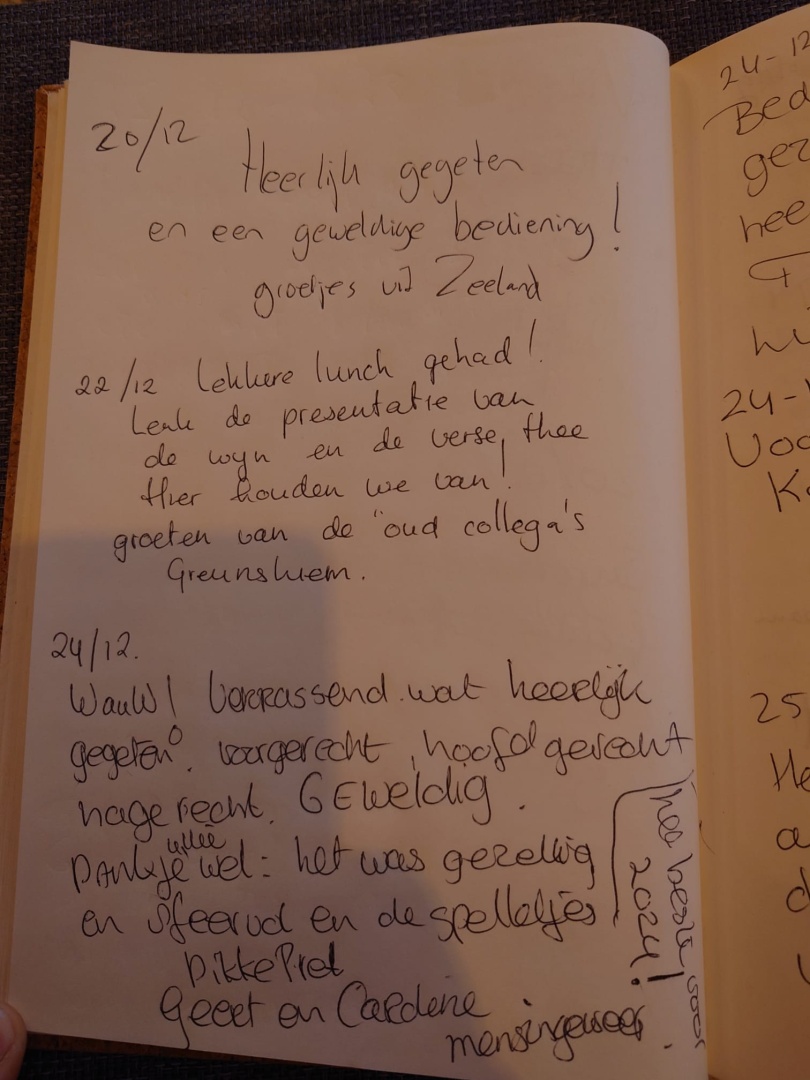 20/12
Heerlijk gegeten
en een geweldige bediening!
groetjes uit Zeeland
22/12 lekkere lunch gehad!
Leuk de presentatie van
de wijn en de verse thee
Hier houden we van!
groeten van de "oud collega's
24/12.
WauW! Verrassend wat heerlijk
gegeten voorgerecht, hoofdgerecht
nagerecht. GEweldig.
jullie
Dankje wel: het was gezellig
en sfeervol en de spelletjes
DikkePret
Geert en
mensingeweer.
hee beste voor
2024!
24-12
Bed
gez
hee
24-
Voo
K
25
He
a
d